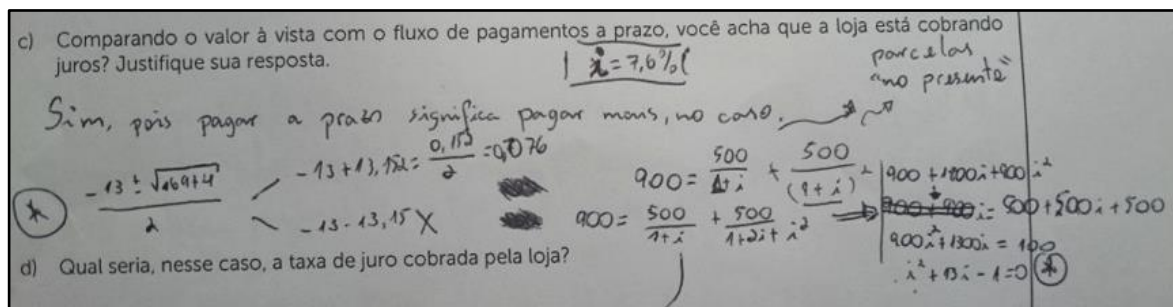 c) Comparando o valor à vista com o fluxo de pagamentos a prazo, você acha que a loja está cobrando
juros? Justifique sua resposta.
i = 7,6%
parcelas
"no presente"
Sim, pois pagar a prazo significa pagar mais, no caso.
* (-13 ± √169+4)/2
-13+13,152 = 0,152/2 = 0,076
-13-13,15 X
900 = 500/(1+i) + 500/(1+i)²
900 = 500/(1+i) + 500/(1+2i+i²) ⇒
900 + 1800i + 900i²
= 500 + 500i + 500
900i² + 1300i = 100
i² + 13i - 1 = 0 *
d) Qual seria, nesse caso, a taxa de juro cobrada pela loja?